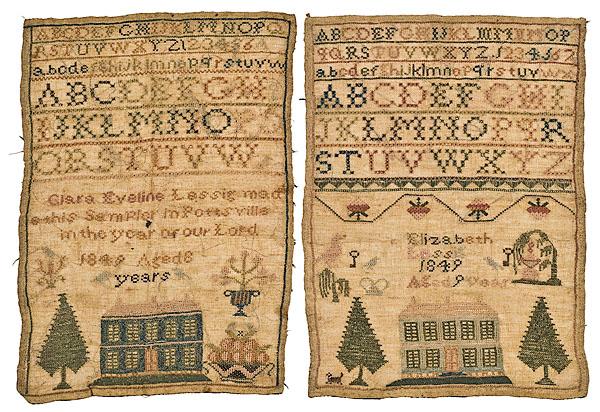 ABCDEFGHIJKLMNOPQ
RSTUVWXYZ123456
abcdefghijklmnopqrstuvw
ABCDEFGHI
JKLMNO
QRSTUVW
Clara Eveline Lessig mad
e this Sampler in Pottsville
in the year of our Lord
1849 Aged 8
years
ABCDEFGHIJKL
OP
QRSTUVWXYZ1234567
abcdefghijklmnopqrstuvw
ABCDEFGHI
JKLMNOPQR
STUVWXYZ
Elizabeth
Lessi
1849
Aged 9 Year